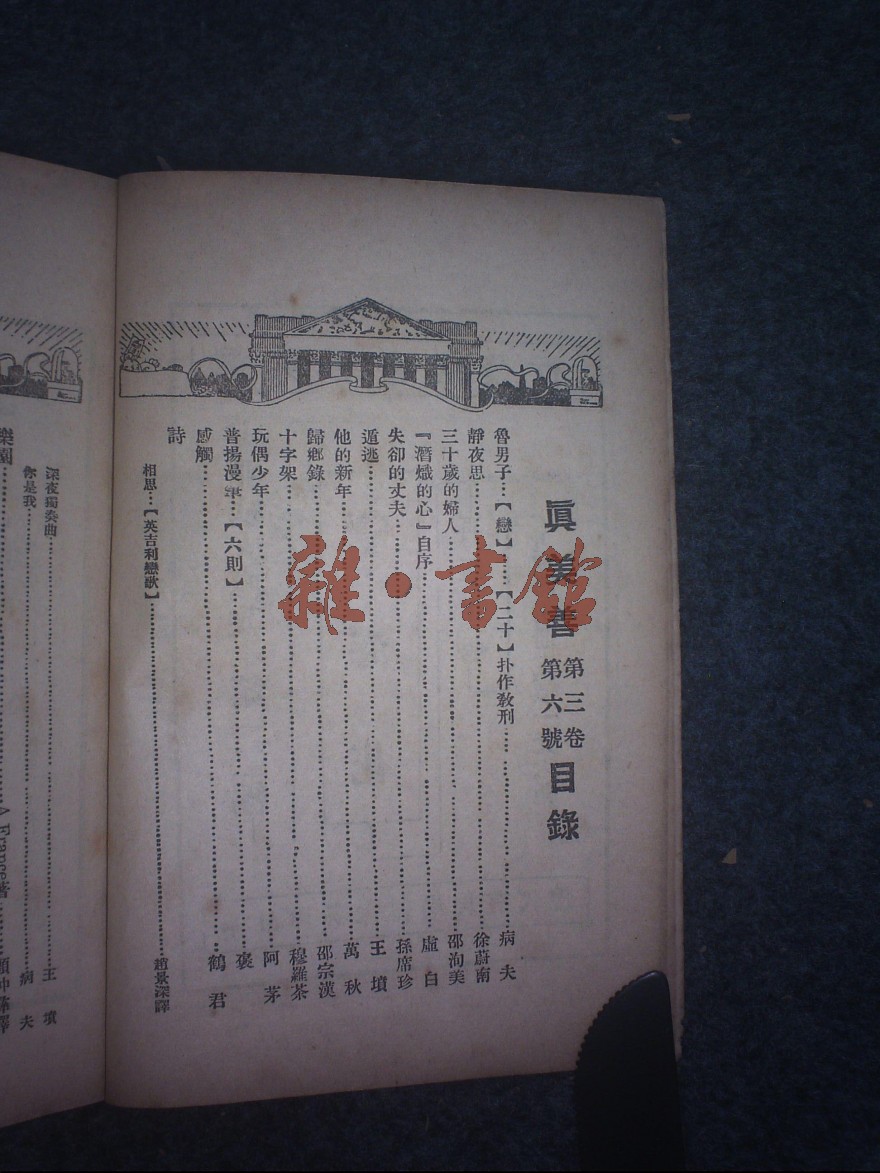 眞美善 第三卷第六號 目錄
魯男子…【戀】……【二十】扑作敎刑……病夫
靜夜思……徐蔚南
三十歲的婦人……邵洵美
『潛熾的心』自序……虛白
失卻的丈夫……孫席珍
遁逃……王墳
他的新年……萬秋
歸鄉錄……邵宗漢
十字架……穆羅茶
玩偶少年……阿茅
普揚漫筆…【六則】……褒
感觸……鶴君
詩
相思…【英吉利戀歌】……趙景深譯
深夜獨奏曲……王墳
你是我……病夫
樂園……A France著……顧仲彝譯
雜·書館